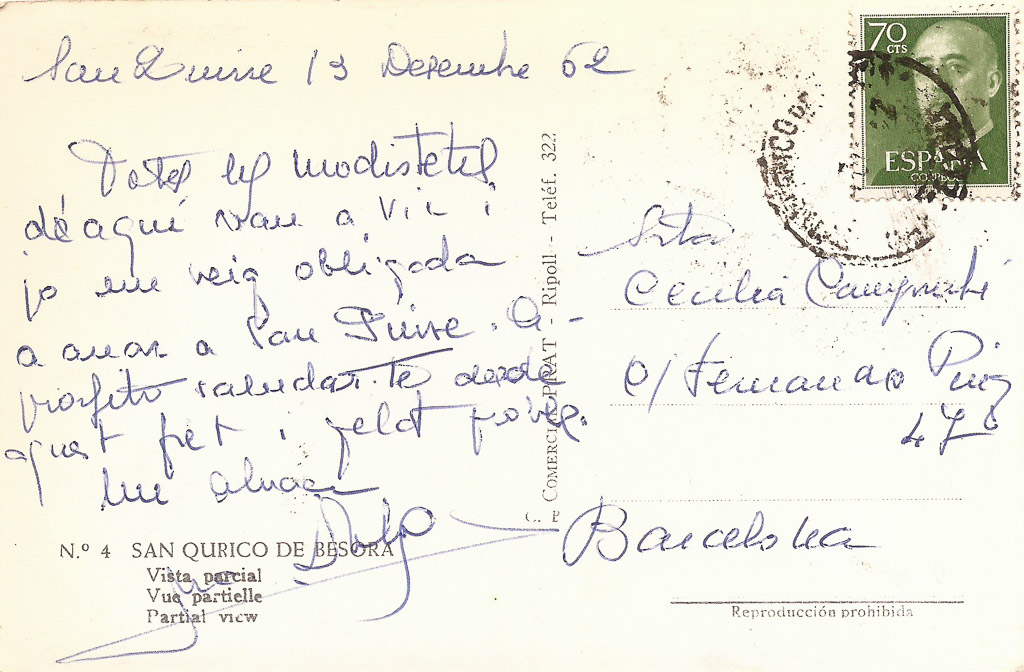 San Quirse 13 Desembre 62
Totes les modistetes
de aquí van a Vic i
jo em veig obligada
a anar a San Quirse. A-
profito saludar-te desde
aquest fret i gelat poble.
Una abraça
Nº 4 SAN QURICO DE BESORA
Vista parcial
Vue partielle
Partial view
COMERCIAL PRAT - Ripoll - Teléf. 322
70
CTS
ESPAÑA
CORREOS
Srta
Cecilia
c/ Fernando Puig
47
Barcelona
Reproducción prohibida